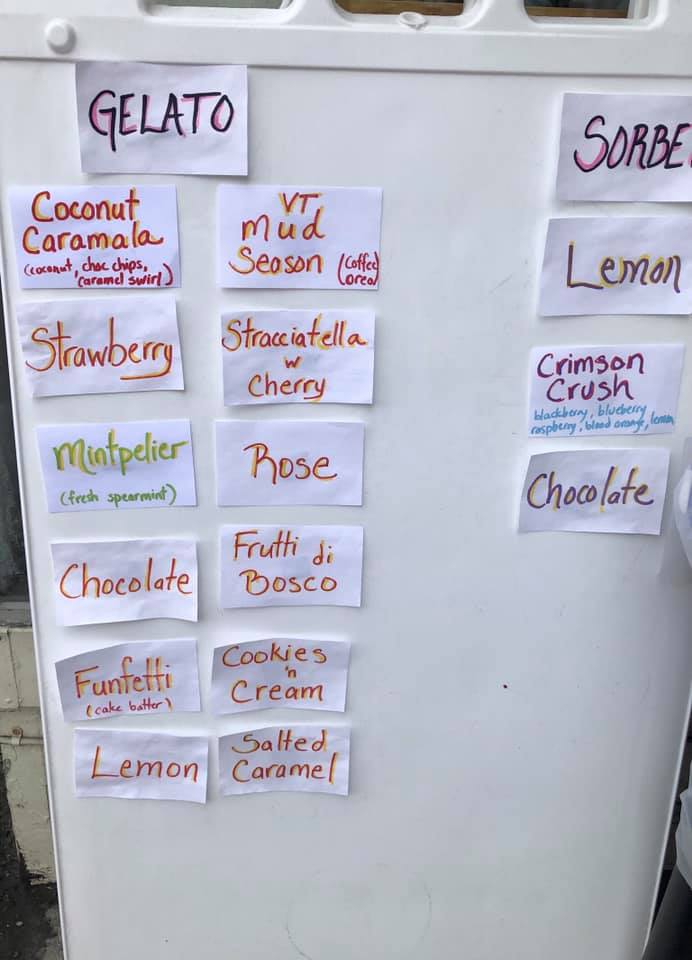 GELATO
Coconut
Caramala
(coconut, choc chips,
caramel swirl)
Strawberry
Mintpelier
(fresh spearmint)
Chocolate
Funfetti
(cake batter)
Lemon
VT
Mud
Season (coffee
oreo)
Stracciatella
w
Cherry
Rose
Frutti di
Bosco
Cookies
'n
Cream
Salted
Caramel
SORBE
Lemon
Crimson
Crush
blackberry, blueberry
raspberry, blood orange, lemon
Chocolate